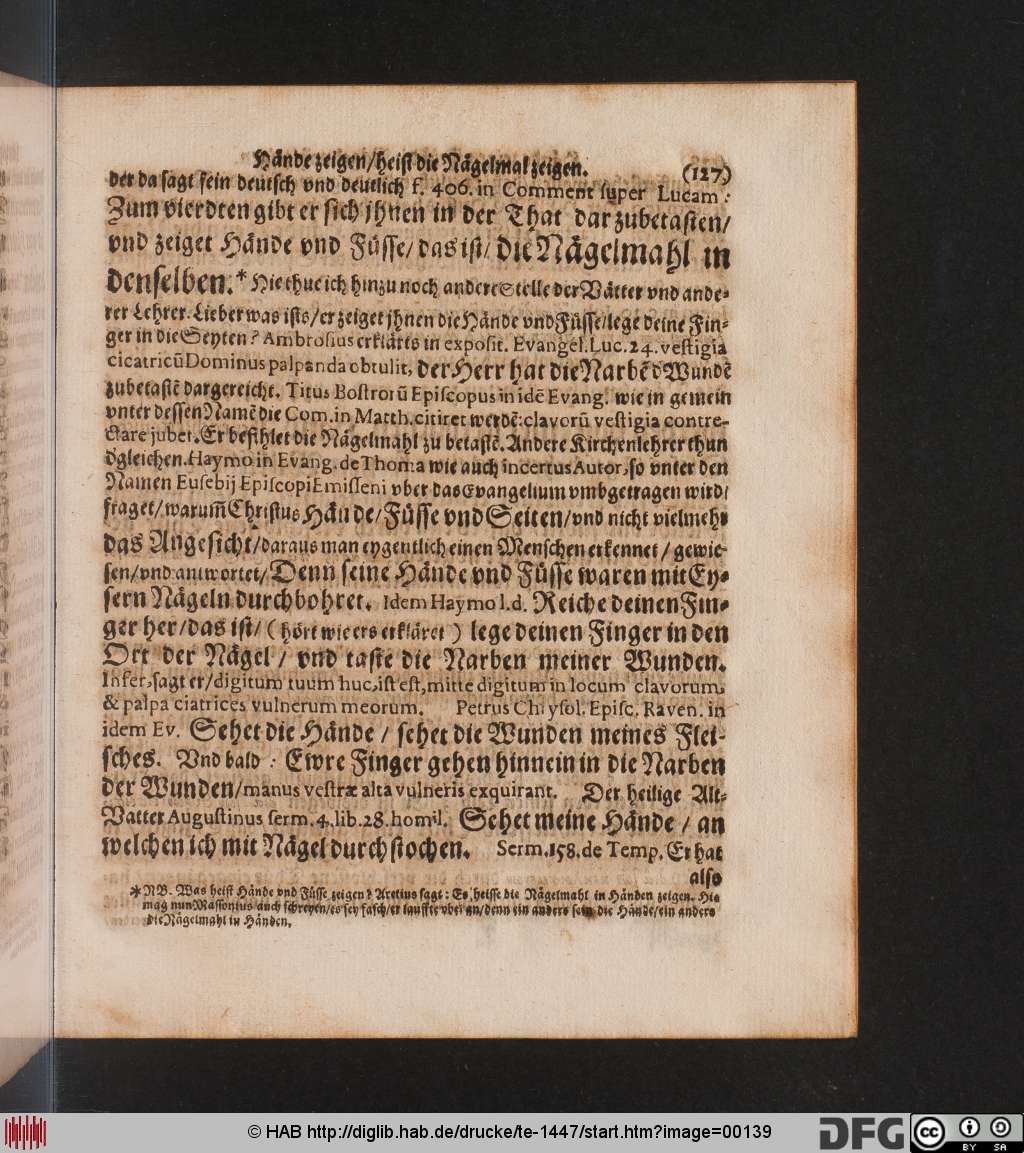 Hände zeigen/heist die Nägelmal zeigen. (127)
der da sagt fein deutsch vnd deutlich f. 406. in Comment ſuper Lucam:
Zum vierdten gibt er sich jhnen in der That dar zubetasten/
vnd zeiget Hände vnd Füſſe/das ist/ die Nägelmahl in
denſelben.* Hie thue ich hinzu noch andere Stelle der Vätter vnd ande-
rer Lehrer. Lieber was iſts/er zeiget jhnen die Hände vnd Füſſe/lege deine Fin-
ger in die Seyten? Ambroſius erklärts in expoſit. Evangel. Luc. 24. veſtigia
cicatricũ Dominus palpanda obtulit, der Herr hat die Narbẽ d' Wundẽ
zubetaſtẽ dargereicht. Titus Boſtrorũ Epiſcopus in idẽ Evang. wie in gemein
vnter deſſen Namẽ die Com. in Matth. citiret werdẽ: clavorũ veſtigia contre-
ctare jubet. Er befihlet die Nägelmahl zu betaſtẽ. Andere Kirchenlehrer thun
d'gleichen. Haymo in Evang. de Thoma wie auch incertus Autor, ſo vnter den
Namen Euſebij Epiſcopi Emiſſeni vber das Evangelium vmbgetragen wird/
fraget/warum̃ Chriſtus Hände/Füſſe vnd Seiten/vnd nicht vielmehr
das Angeſicht/daraus man eygentlich einen Menſchen erkennet/gewie-
ſen/vnd antwortet/Denn ſeine Hände vnd Füſſe waren mit Ey-
ſern Nägeln durchbohret. Idem Haymo l.d. Reiche deinen Fin-
ger her/das iſt/(hört wie ers erkläret) lege deinen Finger in den
Ort der Nägel/ vnd taſte die Narben meiner Wunden.
Infer, ſagt er/digitum tuum huc, iſt eſt, mitte digitum in locum clavorum,
& palpa ciatrices vulnerum meorum. Petrus Chryſol. Epiſc. Raven. in
idem Ev. Sehet die Hände / ſehet die Wunden meines Flei-
ſches. Vnd bald: Ewre Finger gehen hinnein in die Narben
der Wunden/manus veſtræ alta vulneris exquirant. Der heilige Alt-
Vatter Auguſtinus ſerm. 4. lib. 28. homil. Sehet meine Hände / an
welchen ich mit Nägel durchſtochen. Serm. 158. de Temp. Er hat
alſo
* NB. Was heiſt Hände vnd Füſſe zeigen? Aretius ſagt: Es heiſſe die Nägelmahl in Händen zeigen. Hie
mag nun Maſſonius auch ſchreyen/es ſey falſch/er lauffte vbel an/denn ein anders ſein die Hände/ein anders
die Nägelmahl in Händen.
© HAB http://diglib.hab.de/drucke/te-1447/start.htm?image=00139
DFG
cc BY SA